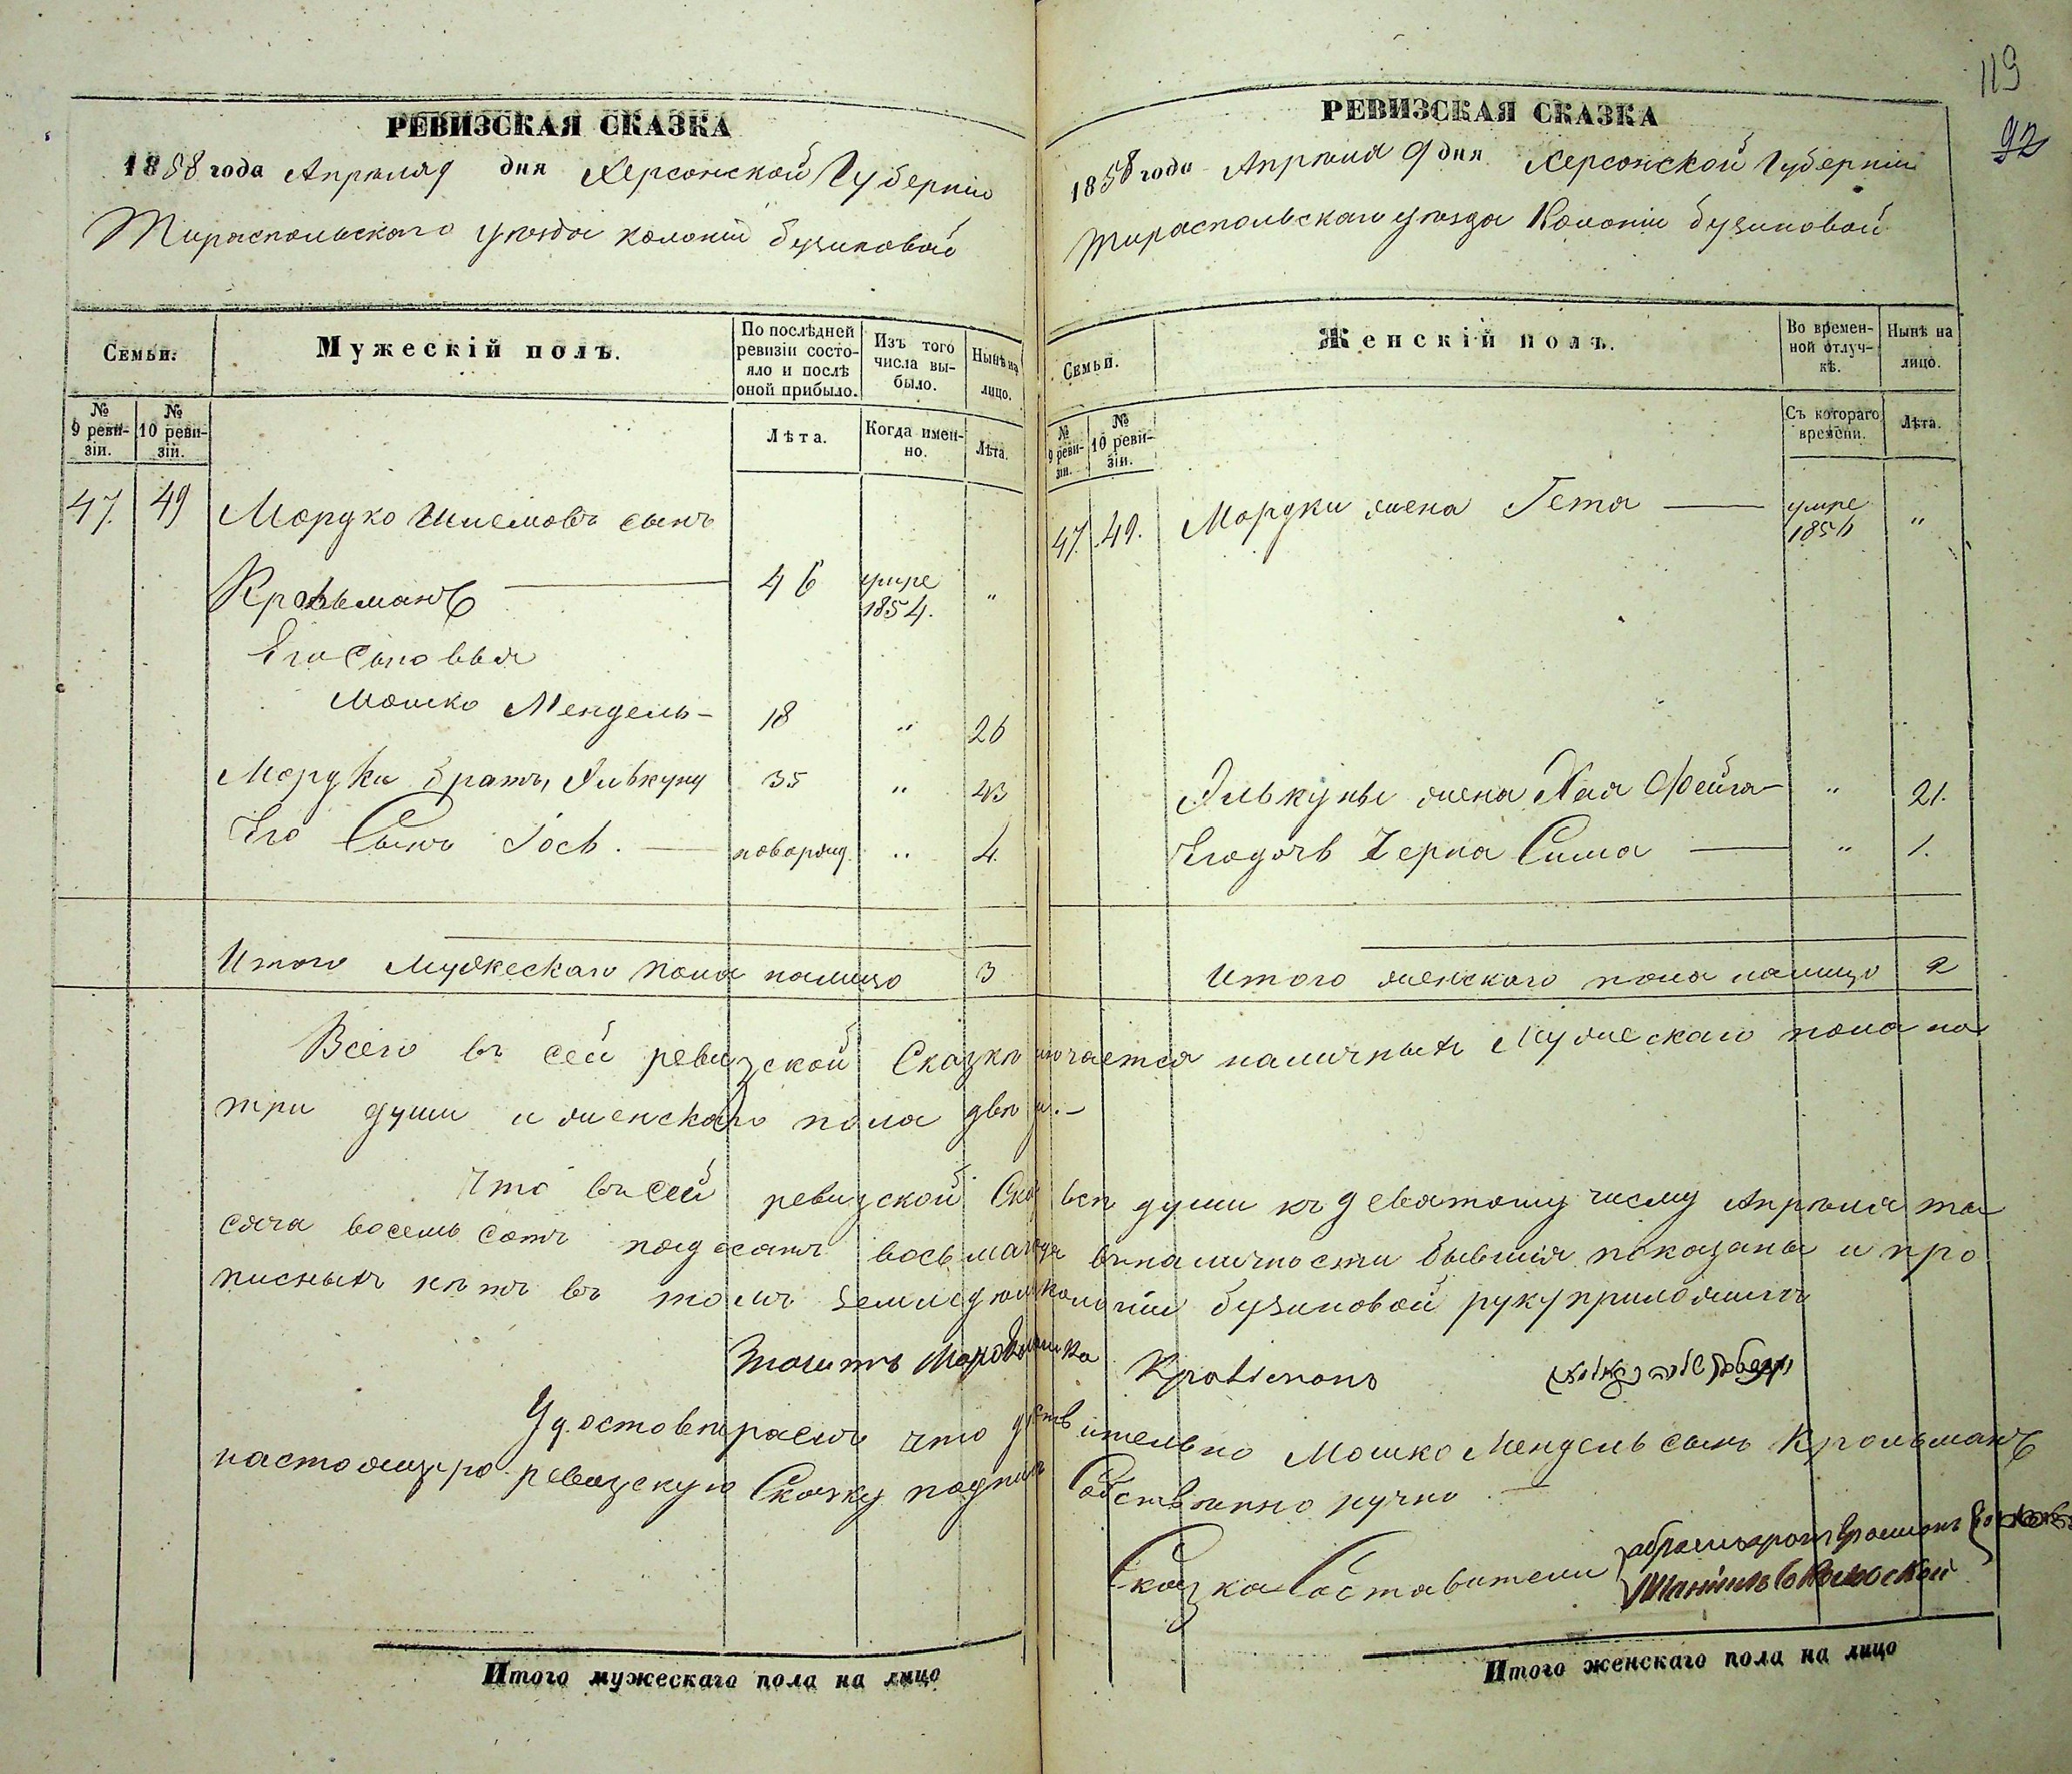 119
92
РЕВИЗСКАЯ СКАЗКА
1858 года Апрѣля 9 дня Херсонской Губерніи
Тираспольскаго уѣзда колоніи Бузиновой
Семьи:
Мужескій полъ.
По послѣдней ревизіи состо-
яло и послѣ оной прибыло.
Изъ того числа вы-
было.
Нынѣ на лицо.
№ 9 реви-
зіи.
№ 10 реви-
зіи.
Лѣта.
Когда имен-
но.
Лѣта.
47. 49 Мордко Шлемовъ сынъ
Крольманъ 46 умре 1854. "
Его Сыновья
Мошко Мендель 18 " 26
Мордки братъ, Элькуну 35 " 43
Его Сынъ Іось. новорожд. " 4.
Итого Мужескаго пола налицо 3
РЕВИЗСКАЯ СКАЗКА
1858 года Апрѣля 9 дня Херсонской Губерніи
Тираспольскаго уѣзда Колоніи Бузиновой
Семьи.
Женскій полъ.
Во времен-
ной отлуч-
кѣ.
Нынѣ на лицо.
№ 9 реви-
зіи.
№ 10 реви-
зіи.
Съ котораго времени.
Лѣта.
47. 49. Мордки жена Гета умре 1856 "
Элькуны жена Хая Фейга " 21.
Его дочь Черна Сима " 1.
Итого женскаго пола налицо 2
Всего въ сей ревизской Сказкѣ наличныхъ Мужескаго пола
три души и женскаго пола двѣ
Что въ сей ревизской всѣ души къ девятому числу Апрѣля ты
сяча восемь сотъ пятдесятъ восьмаго года въ наличности бывшія показаны и про
писныхъ нѣтъ въ томъ колоніи Бузиновой руку приложилъ
Крольманъ
Удостовѣряемъ что дѣйствительно Мошко Мендель сынъ Крольманъ
настоящую ревизскую Сказку подписалъ Собственно ручно.
Сказка Составители
Итого мужескаго пола на лицо
Итого женскаго пола на лицо